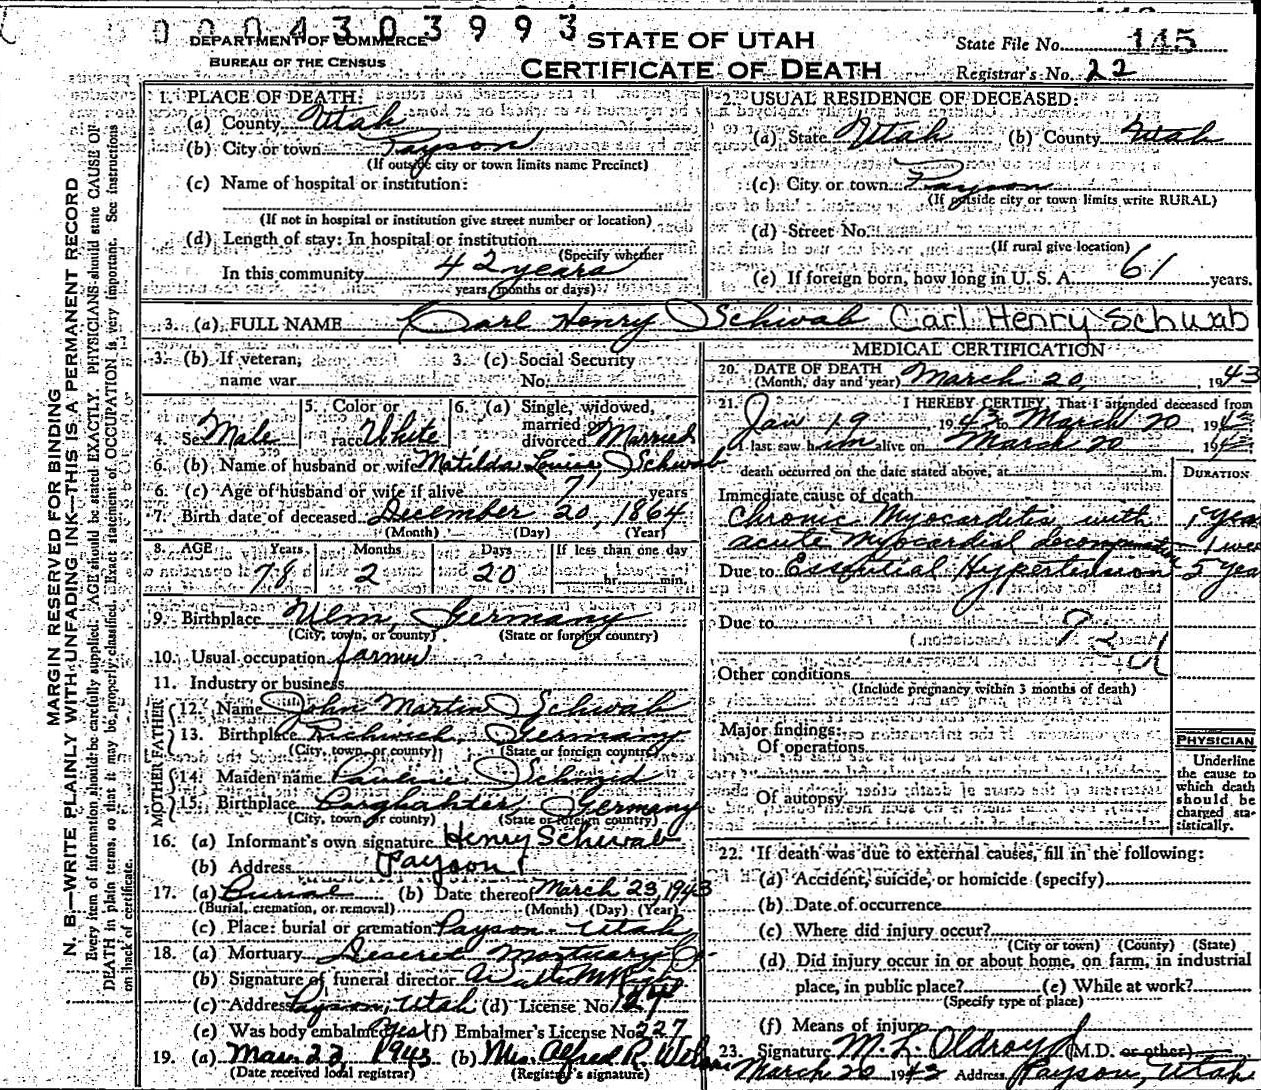 0004303993
DEPARTMENT OF COMMERCE
BUREAU OF THE CENSUS
STATE OF UTAH
CERTIFICATE OF DEATH
State File No. 145
Registrar's No. 22
MARGIN RESERVED FOR BINDING
N. B.—WRITE PLAINLY WITH UNFADING INK—THIS IS A PERMANENT RECORD
Every item of information should be carefully supplied. AGE should be stated EXACTLY. PHYSICIANS should state CAUSE OF
DEATH in plain terms, so that it may be properly classified. Exact statement of OCCUPATION is very important. See instructions
on back of certificate.
1. PLACE OF DEATH:
(a) County Utah
(b) City or town Payson
(If outside city or town limits name Precinct)
(c) Name of hospital or institution:
(If not in hospital or institution give street number or location)
(d) Length of stay: In hospital or institution
(Specify whether
In this community 42 years
years, months or days)
2. USUAL RESIDENCE OF DECEASED:
(a) State Utah (b) County Utah
(c) City or town Payson
(If outside city or town limits write RURAL)
(d) Street No.
(If rural give location)
(e) If foreign born, how long in U. S. A. 61 years.
3. (a) FULL NAME Carl Henry Schwab Carl Henry Schwab
3. (b) If veteran, name war
3. (c) Social Security No.
4. Sex Male
5. Color or race White
6. (a) Single, widowed, married or divorced Married
6. (b) Name of husband or wife Matilda Louise Schwab
6. (c) Age of husband or wife if alive 71 years
7. Birth date of deceased December 20, 1864
(Month) (Day) (Year)
8. AGE Years Months Days If less than one day
78 2 20 hr. min.
9. Birthplace Ulm, Germany
(City, town, or county) (State or foreign country)
10. Usual occupation farmer
11. Industry or business
FATHER
12. Name John Martin Schwab
13. Birthplace Germany
(City, town, or county) (State or foreign country)
MOTHER
14. Maiden name Pauline Schmid
15. Birthplace Germany
(City, town, or county) (State or foreign country)
16. (a) Informant's own signature Henry Schwab
(b) Address Payson
17. (a) Burial (b) Date thereof March 23, 1943
(Burial, cremation, or removal) (Month) (Day) (Year)
(c) Place: burial or cremation Payson - Utah
18. (a) Mortuary Deseret Mortuary Co.
(b) Signature of funeral director
(c) Address Payson, Utah (d) License No.
(e) Was body embalmed yes (f) Embalmer's License No. 227
19. (a) Mar. 22, 1943 (b) Mrs. Alfred R.
(Date received local registrar) (Registrar's signature)
MEDICAL CERTIFICATION
20. DATE OF DEATH
(Month, day and year) March 20, 1943
21. I HEREBY CERTIFY, That I attended deceased from
Jan 19, 1943 to March 20 1943
I last saw him alive on March 20 1943
death occurred on the date stated above, at m.
DURATION
Immediate cause of death
Chronic Myocarditis with 1 year
acute Myocardial decompensation 1 week
Due to Essential Hypertension 5 year
Due to
93d
Other conditions
(Include pregnancy within 3 months of death)
Major findings:
Of operations
Of autopsy
PHYSICIAN
Underline
the cause to
which death
should be
charged sta-
tistically.
22. If death was due to external causes, fill in the following:
(a) Accident, suicide, or homicide (specify)
(b) Date of occurrence
(c) Where did injury occur?
(City or town) (County) (State)
(d) Did injury occur in or about home, on farm, in industrial
place, in public place? (e) While at work?
(Specify type of place)
(f) Means of injury
23. Signature M. L. Oldroyd (M.D. or other)
March 20 1943 Address Payson, Utah